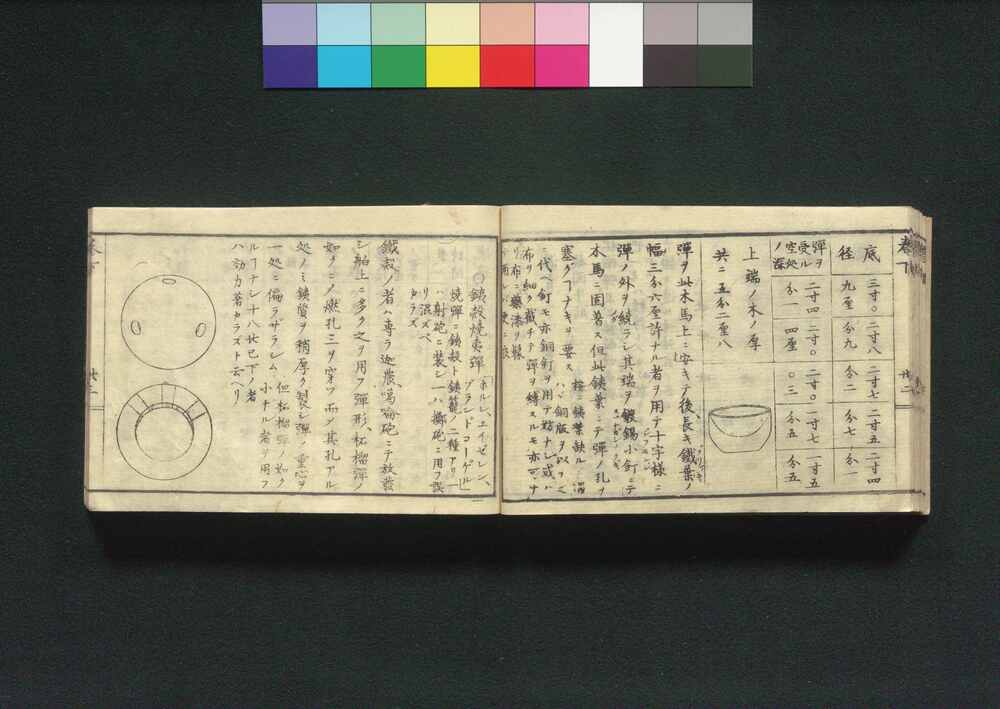 巻下
廿二
底径
三寸〇九厘
二寸八分九
二寸七分二
二寸五分七
二寸四分一
弾ヲ受ル空処ノ深
二寸四分一
二寸〇四厘
二寸〇〇三
一寸七分五
一寸五分五
上端ノ木ノ厚
共ニ五分二厘八
弾ヲ此木馬上ニ安キテ後長キ鐵葉ノ
幅三分六厘許ナル者ヲ用テ十字様ニ
弾ノ外ヲ繞ラシ其端ヲ鍍錫小釘ニテ
木馬ニ固着ス但此鐵葉ニテ弾ノ孔ヲ
塞グヿナキヲ要ス
ハバ銅版ヲ以テ之
ニ代ヘ釘モ亦銅釘ヲ用テ妨ナシ或ハ
布ヲ細ク截チテ弾ヲ縛スルモ亦可ナ
〇鐵殻焼夷弾
ホルレ、エイゼレン、ブランドコーゲル
焼弾ニ鋳殻ト鐵籠ノ二種アリ一
ハ射砲ニ装シ一ハ擲砲ニ用フ誤
リ混ズベカラズ
鐵殻ノ者ハ専ラ迦農、葛龠砲ニテ放發
シ船上ニ多ク之ヲ用フ弾形、柘榴弾ノ
如クニノ燃孔三ヲ穿ツ而ノ其孔アル
処ノミ鐵質ヲ稍厚ク製シ弾ノ重心ヲ
一処ニ偏ラザラシム
但柘榴弾ノ如ク小ナル者ヲ用フ
ルヿナシ十八廿已下ノ者
ハ効力著カラズト云ヘリ
巻下
廿二